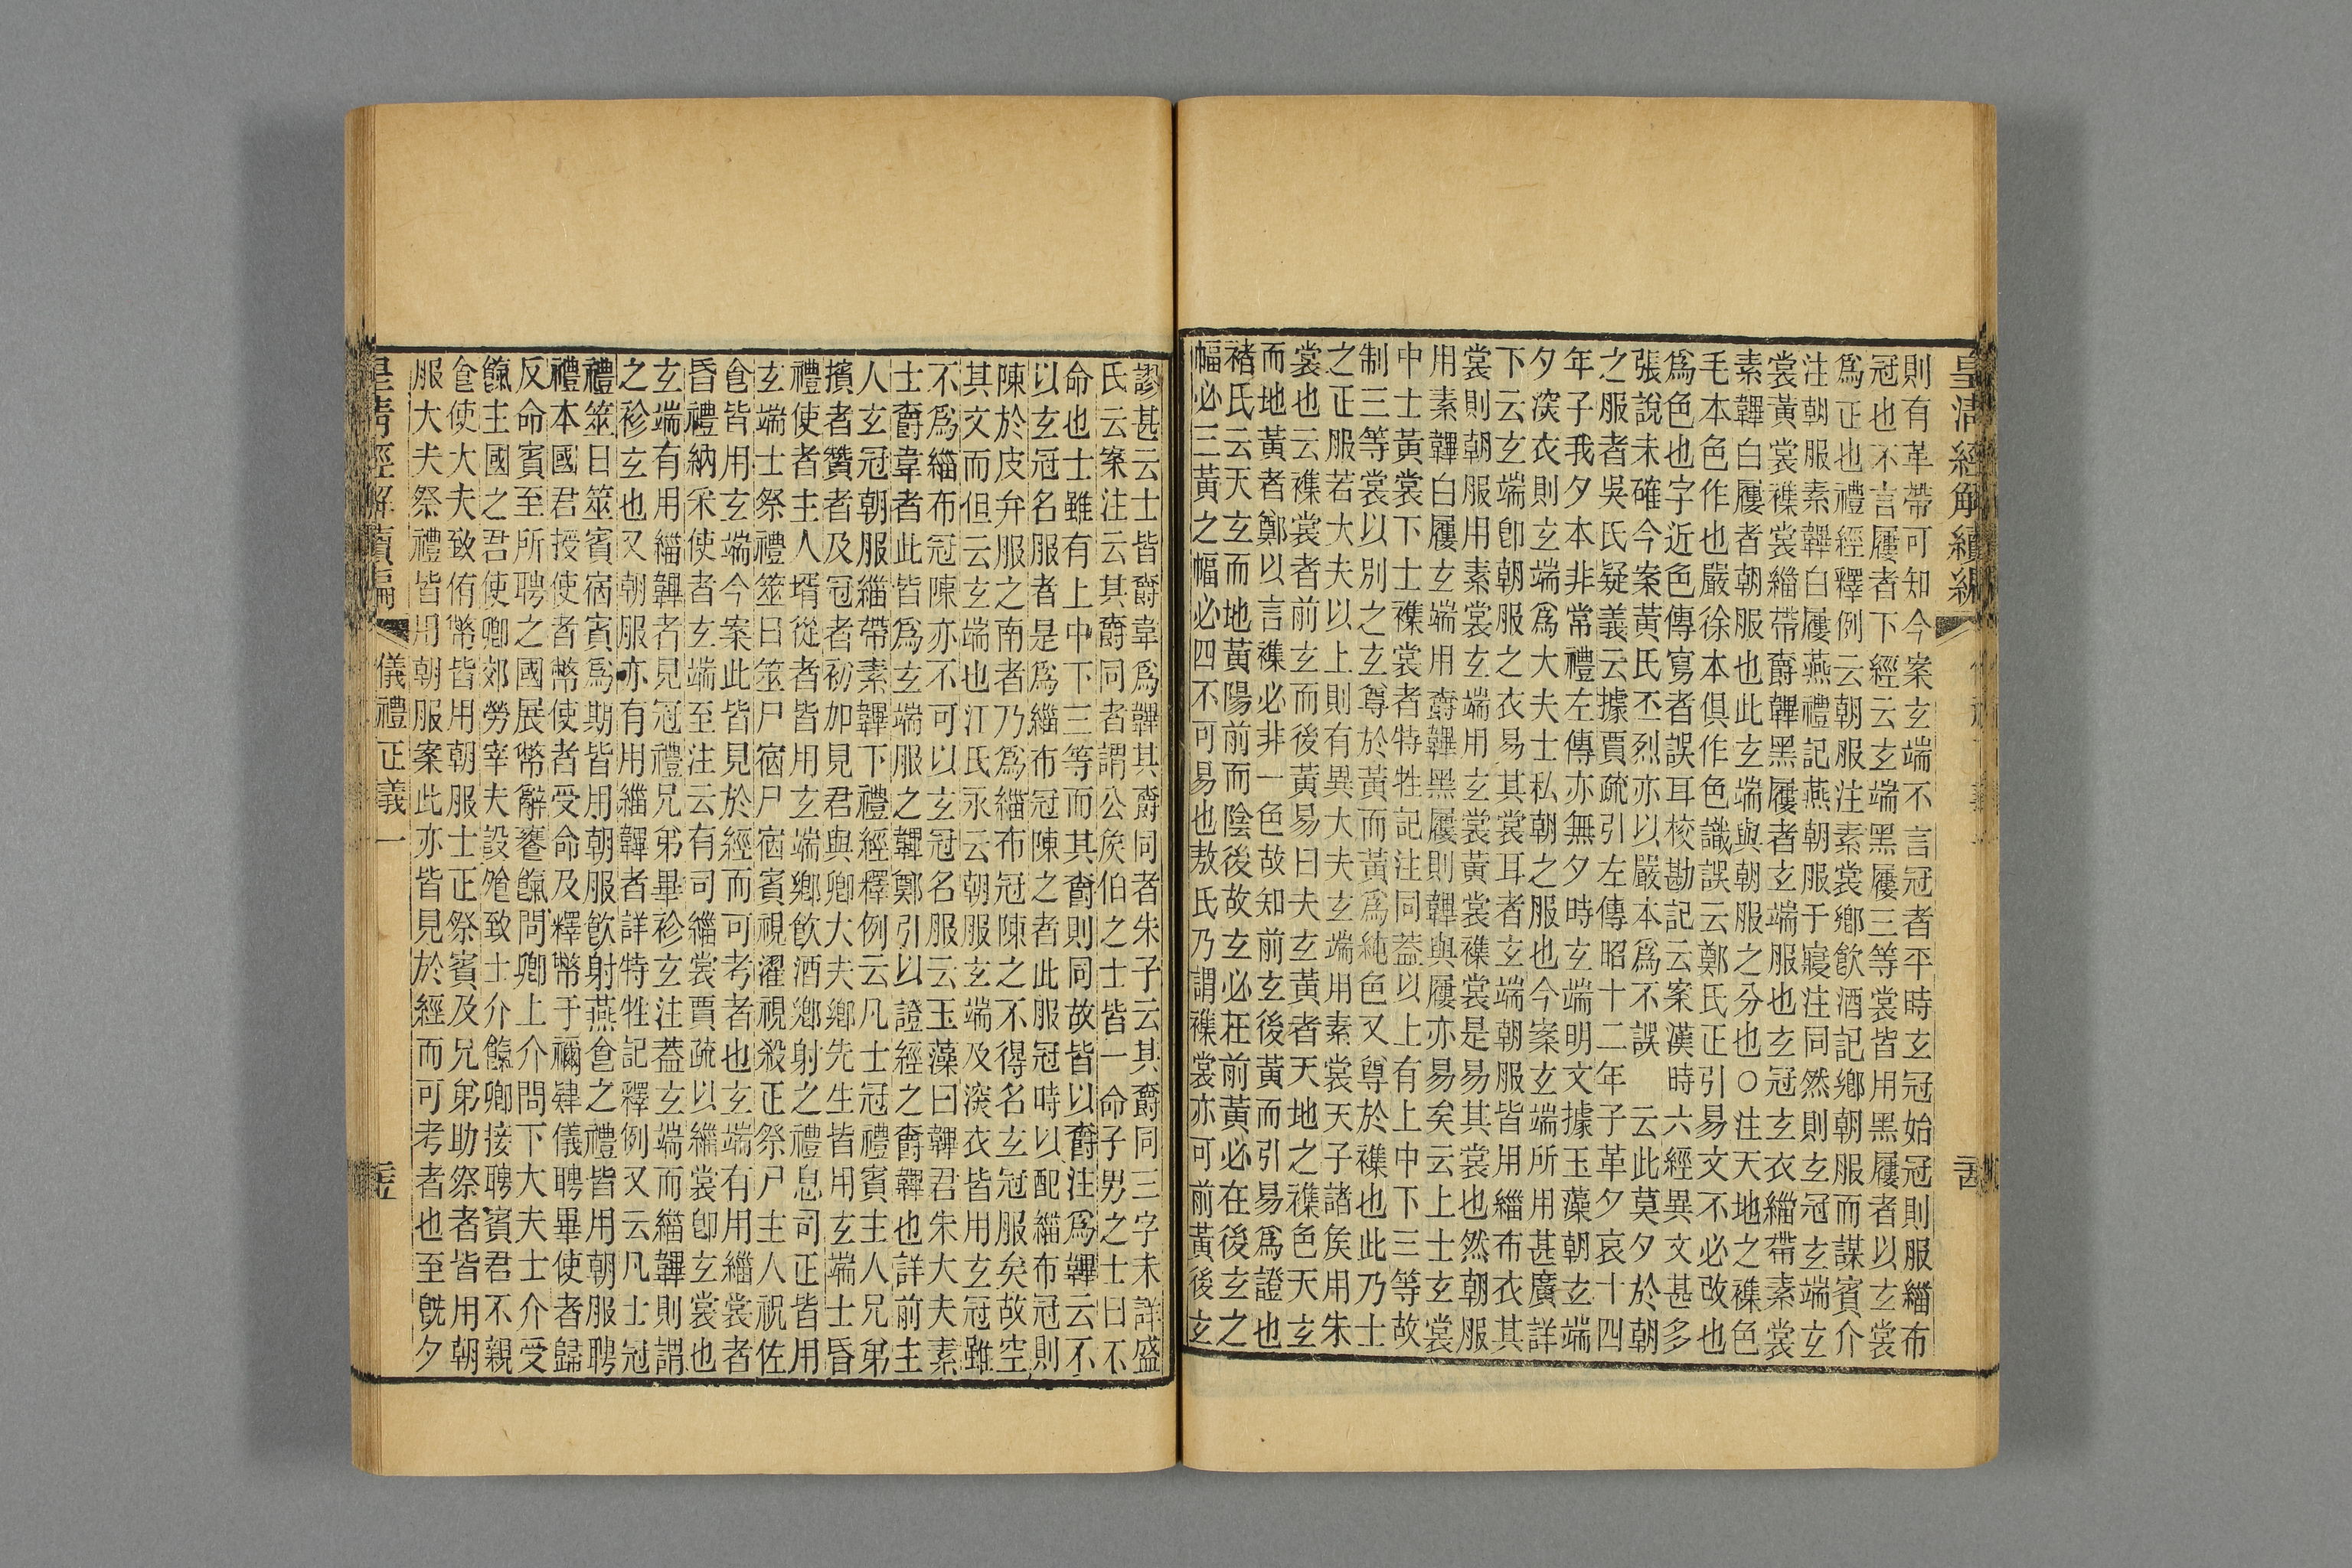 皇清經解續編
則有革帶可知今案玄端不言冠者平時玄冠始冠則服緇布
冠也不言屨者下經云玄端黑屨三等裳皆用黑屨者以玄裳
爲正也禮經釋例云朝服注素裳鄉飲酒記鄉朝服而謀賓介
注朝服素韠白屨燕禮記燕朝服于寢注同然則玄冠玄端玄
裳黃裳襍裳緇帶爵韠黑屨者玄端服也玄冠玄衣緇帶素裳
素韠白屨者朝服也此玄端與朝服之分也○注天地之襍色
毛本色作也嚴徐本俱作色識誤云鄭氏正引易文不必改也
爲色也字近色傳寫者誤耳校勘記云案漢時六經異文甚多
張說未確今案黃氏丕烈亦以嚴本爲不誤 云此莫夕於朝
之服者吳氏疑義云據賈疏引左傳昭十二年子革夕哀十四
年子我夕本非常禮左傳亦無夕時玄端明文據玉藻朝玄端
夕深衣則玄端爲大夫士私朝之服也今案玄端所用甚廣詳
下云玄端卽朝服之衣易其裳耳者玄端朝服皆用緇布衣其
裳則朝服用素裳玄端用玄裳黃裳襍裳是易其裳也然朝服
用素韠白屨玄端用爵韠黑屨則韠與屨亦易矣云上士玄裳
中士黃裳下士襍裳者特牲記注同葢以上有上中下三等故
制三等裳以別之玄尊於黃而黃爲純色又尊於襍也此乃士
之正服若大夫以上則有異大夫玄端用素裳天子諸矦用朱
裳也云襍裳者前玄而後黃易曰夫玄黃者天地之襍色天玄
而地黃者鄭以言襍必非一色故知前玄後黃而引易爲證也
褚氏云天玄而地黃陽前而陰後故玄必在前黃必在後玄之
幅必三黃之幅必四不可易也敖氏乃謂襍裳亦可前黃後玄
謬甚云士皆爵韋爲韠其爵同者朱子云其爵同三字未詳盛
氏云案注云其爵同者謂公矦伯之士皆一命子男之士曰不
命也士雖有上中下三等而其爵則同故皆以爵注爲韠云不
以玄冠名服者是爲緇布冠陳之者此服冠時以配緇布冠則
陳於皮弁服之南者乃爲緇布冠陳之不得名玄冠服矣故空
其文而但云玄端也江氏永云朝服玄端及深衣皆用玄冠雖
不爲緇布冠陳亦不可以玄冠名服云玉藻曰韠君朱大夫素
士爵韋者此皆爲玄端服之韠鄭引以證經之爵韠也詳前主
人玄冠朝服緇帶素韠下禮經釋例云凡士冠禮賓主人兄弟
擯者贊者及冠者初加見君與卿大夫鄉先生皆用玄端士昏
禮使者主人壻從者皆用玄端鄉飲酒鄉射之禮息司正皆用
玄端士祭禮筮日筮尸宿尸宿賓視濯視殺正祭尸主人祝佐
食皆用玄端今案此皆見於經而可考者也玄端有用緇裳者
昏禮納采使者玄端至注云有司緇裳賈疏以緇裳卽玄裳也
玄端有用緇韠者見冠禮兄弟畢袗玄注葢玄端而緇韠則謂
之袗玄也又朝服亦有用緇韠者詳特牲記釋例又云凡士冠
禮筮日筮賓宿賓爲期皆用朝服飲射燕食之禮皆用朝服聘
禮本國君授使者幣使者受命及釋幣于禰肄儀聘畢使者歸
反命賓至所聘之國展幣辭饔餼問卿上介問下大夫士介受
餼主國之君使卿郊勞宰夫設飱致士介餼卿接聘賓君不親
食使大夫致侑幣皆用朝服士正祭賓及兄弟助祭者皆用朝
服大夫祭禮皆用朝服案此亦皆見於經而可考者也至旣夕
皇清經解續編
儀禮正義一